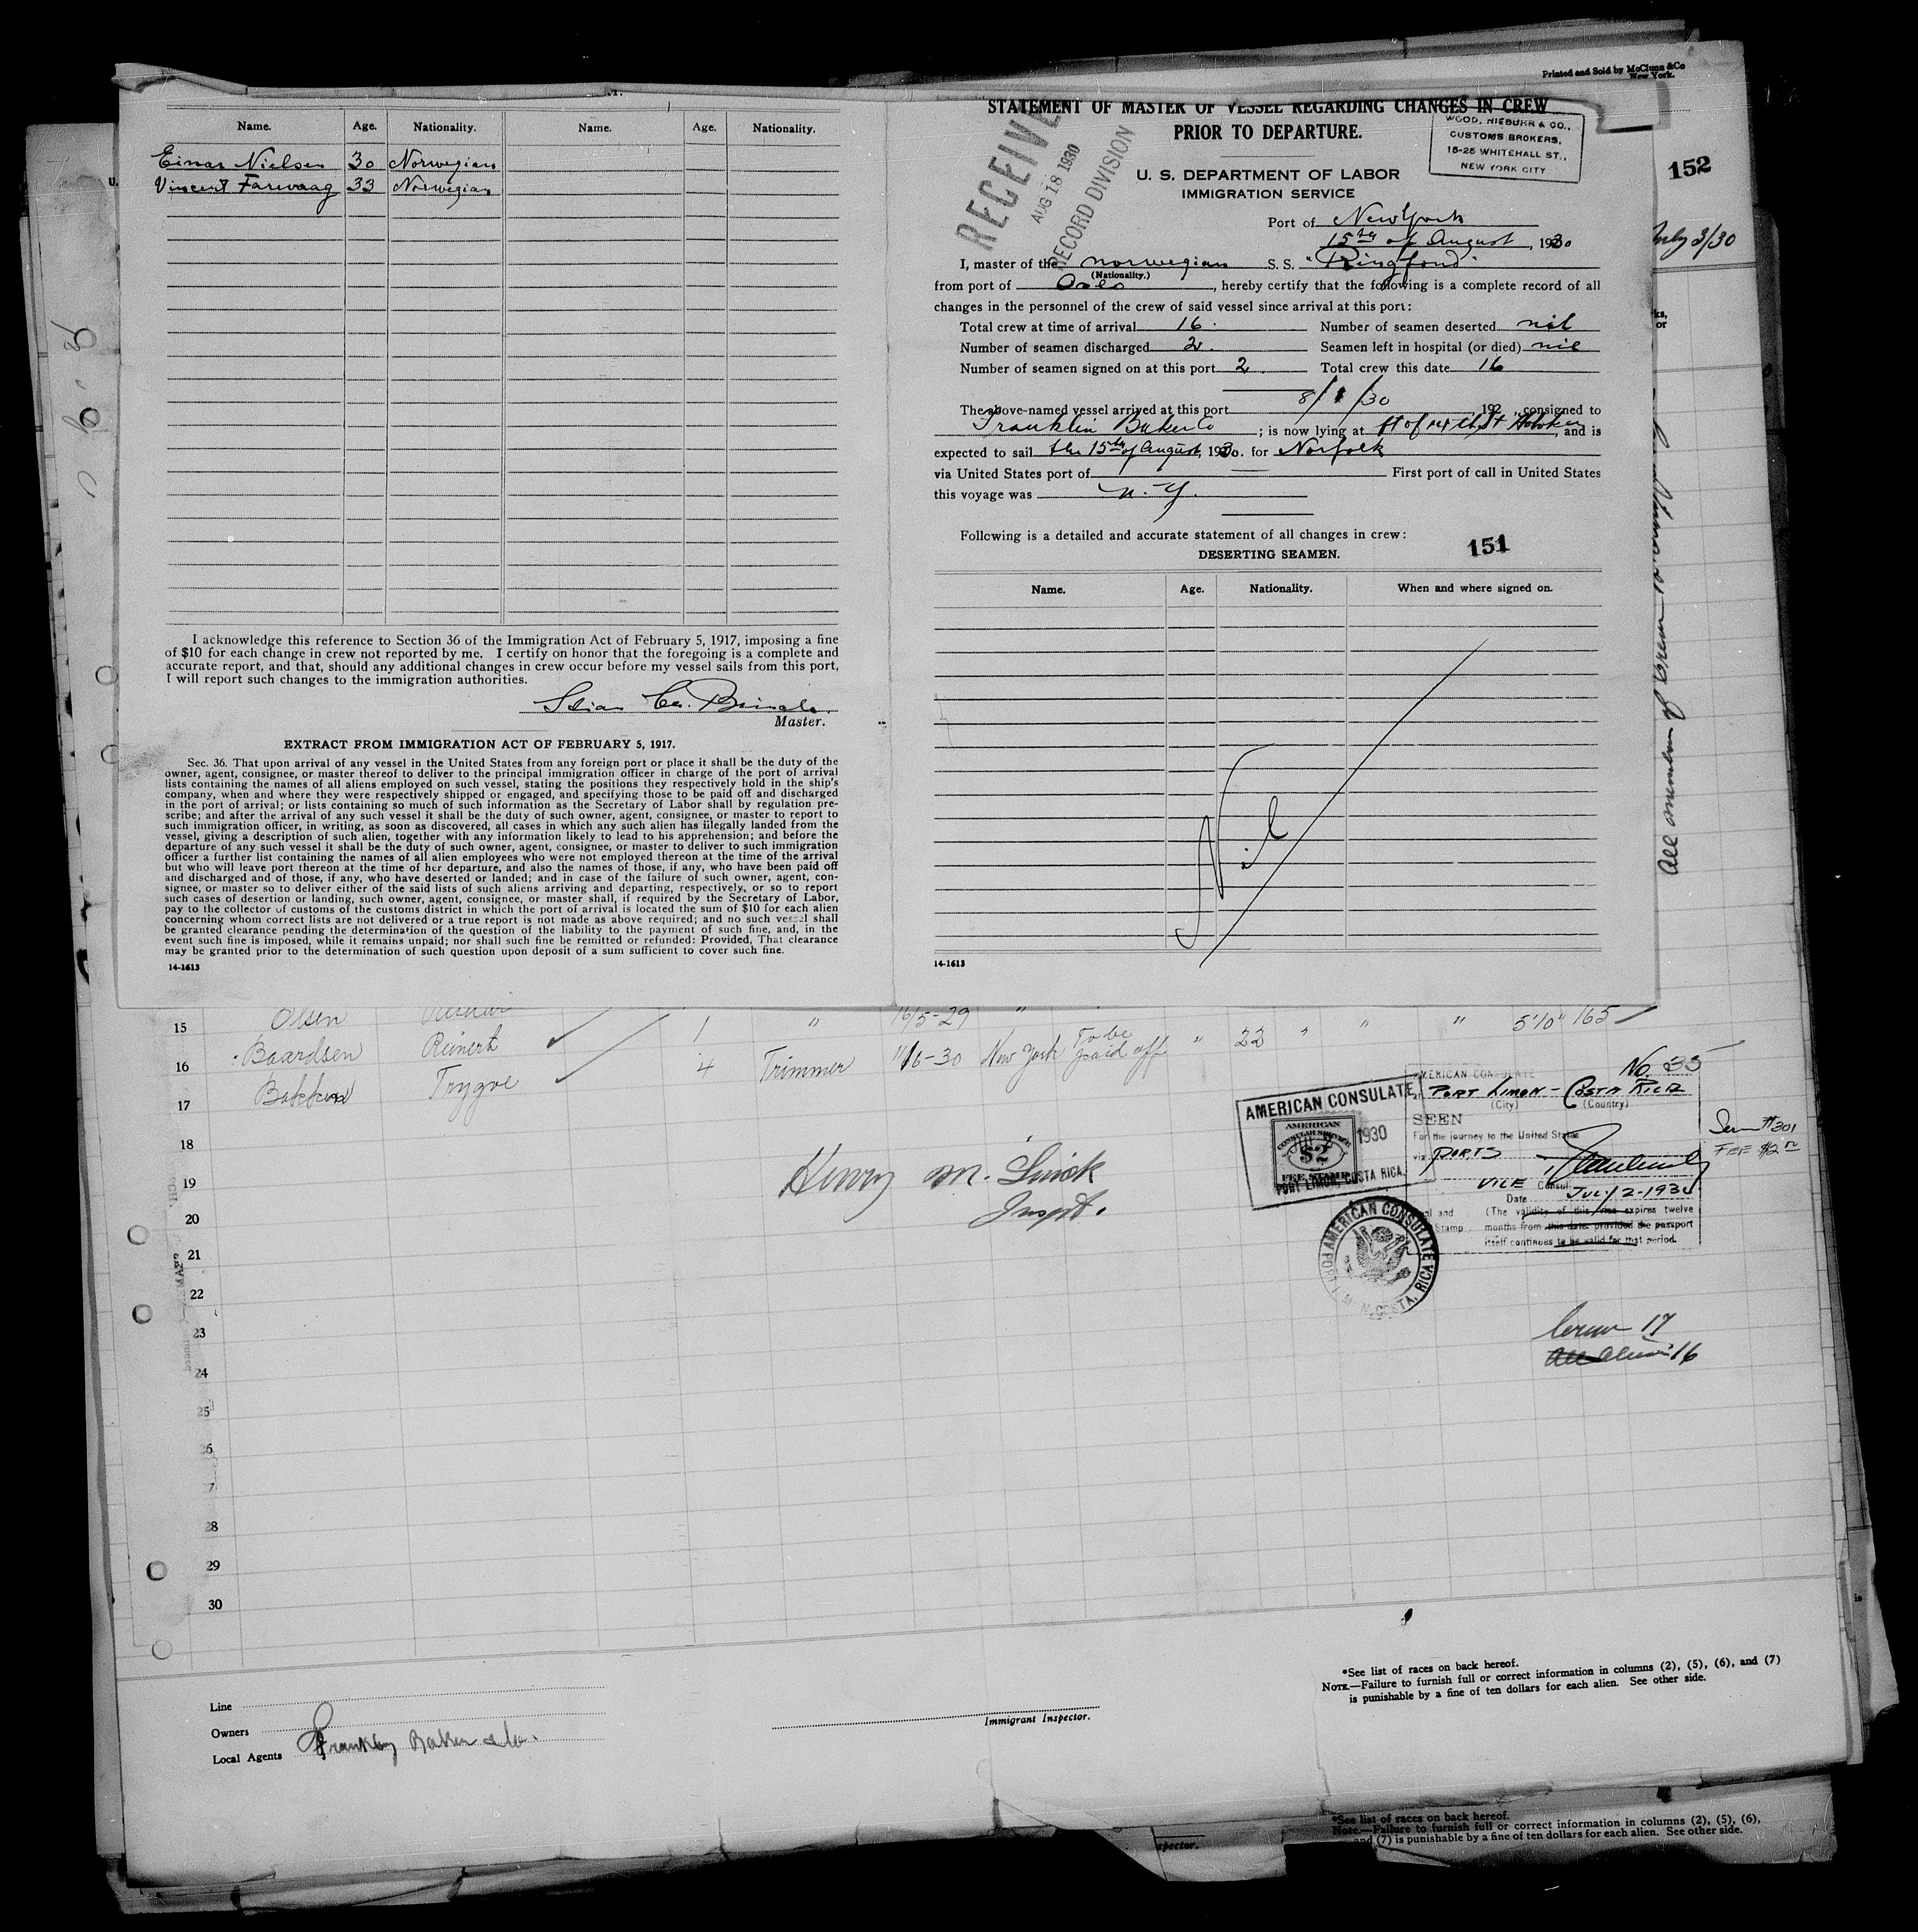 Printed and Sold by McClunn &Co
New York.
152
July 3/30
Name. Age. Nationality. Name. Age. Nationality.
Einar Nielsen 30 Norwegian
Vincent Farevaag 33 Norwegian
I acknowledge this reference to Section 36 of the Immigration Act of February 5, 1917, imposing a fine
of $10 for each change in crew not reported by me. I certify on honor that the foregoing is a complete and
accurate report, and that, should any additional changes in crew occur before my vessel sails from this port,
I will report such changes to the immigration authorities.
Master.
EXTRACT FROM IMMIGRATION ACT OF FEBRUARY 5, 1917.
Sec. 36. That upon arrival of any vessel in the United States from any foreign port or place it shall be the duty of the
owner, agent, consignee, or master thereof to deliver to the principal immigration officer in charge of the port of arrival
lists containing the names of all aliens employed on such vessel, stating the positions they respectively hold in the ship's
company, when and where they were respectively shipped or engaged, and specifying those to be paid off and discharged
in the port of arrival; or lists containing so much of such information as the Secretary of Labor shall by regulation pre-
scribe; and after the arrival of any such vessel it shall be the duty of such owner, agent, consignee, or master to report to
such immigration officer, in writing, as soon as discovered, all cases in which any such alien has illegally landed from the
vessel, giving a description of such alien, together with any information likely to lead to his apprehension; and before the
departure of any such vessel it shall be the duty of such owner, agent, consignee, or master to deliver to such immigration
officer a further list containing the names of all alien employees who were not employed thereon at the time of the arrival
but who will leave port thereon at the time of her departure, and also the names of those, if any, who have been paid off
and discharged and of those, if any, who have deserted or landed; and in case of the failure of such owner, agent, con-
signee, or master so to deliver either of the said lists of such aliens arriving and departing, respectively, or so to report
such cases of desertion or landing, such owner, agent, consignee, or master shall, if required by the Secretary of Labor,
pay to the collector of customs of the customs district in which the port of arrival is located the sum of $10 for each alien
concerning whom correct lists are not delivered or a true report is not made as above required; and no such vessel shall
be granted clearance pending the determination of the question of the liability to the payment of such fine, and, in the
event such fine is imposed, while it remains unpaid; nor shall such fine be remitted or refunded: Provided, That clearance
may be granted prior to the determination of such question upon deposit of a sum sufficient to cover such fine.
14-1613
STATEMENT OF MASTER OF VESSEL REGARDING CHANGES IN CREW
PRIOR TO DEPARTURE.
WOOD, NIEBUHR & CO.,
CUSTOMS BROKERS,
15-25 WHITEHALL ST.,
NEW YORK CITY
RECEIVE
AUG 18 1930
RECORD DIVISION
U. S. DEPARTMENT OF LABOR
IMMIGRATION SERVICE
Port of New York
15th of August, 1930
I, master of the norwegian S. S. "Ringfond"
(Nationality.)
from port of Oslo, hereby certify that the following is a complete record of all
changes in the personnel of the crew of said vessel since arrival at this port:
Total crew at time of arrival 16. Number of seamen deserted nil
Number of seamen discharged 2. Seamen left in hospital (or died) nil
Number of seamen signed on at this port 2. Total crew this date 16
The above-named vessel arrived at this port 8/1/30, 192 , consigned to
Franklin Baker Co; is now lying at ft of 14th St Hoboken, and is
expected to sail the 15th of August, 1930. for Norfolk
via United States port of First port of call in United States
this voyage was N.Y.
Following is a detailed and accurate statement of all changes in crew:
151
DESERTING SEAMEN.
Name. Age. Nationality. When and where signed on.
Nil
14-1613
All members of crew
15 Olsen 1 " 16/5-29 " " 5'10" 165
16 Baardsen Reinert 4 Trimmer 11/6-30 New York To be paid off " 22 " " "
17 Trygve
18
19
20
21
22
23
24
25
26
27
28
29
30
Henry M.
Inspt.
AMERICAN CONSULATE
AMERICAN
CONSULAR SERVICE
$2
FEE STAMP
1930
PORT LIMON, COSTA RICA.
No. 35
AMERICAN CONSULATE
PORT LIMON - COSTA RICA
(City) (Country)
SEEN
For the journey to the United States
via PORTS
VICE Consul
Date JULY 2-1930
(The validity of this visa expires twelve
months from this date provided the passport
itself continues to be valid for that period.
Seal and
Stamp
#301
FEE $2
AMERICAN CONSULATE
PORT LIMON, COSTA, RICA
Crew 17
16
Line
Owners
Local Agents
Immigrant Inspector.
*See list of races on back hereof.
NOTE.—Failure to furnish full or correct information in columns (2), (5), (6), and (7)
is punishable by a fine of ten dollars for each alien. See other side.
*See list of races on back hereof.
Note.—Failure to furnish full or correct information in columns (2), (5), (6),
and (7) is punishable by a fine of ten dollars for each alien. See other side.
spector.